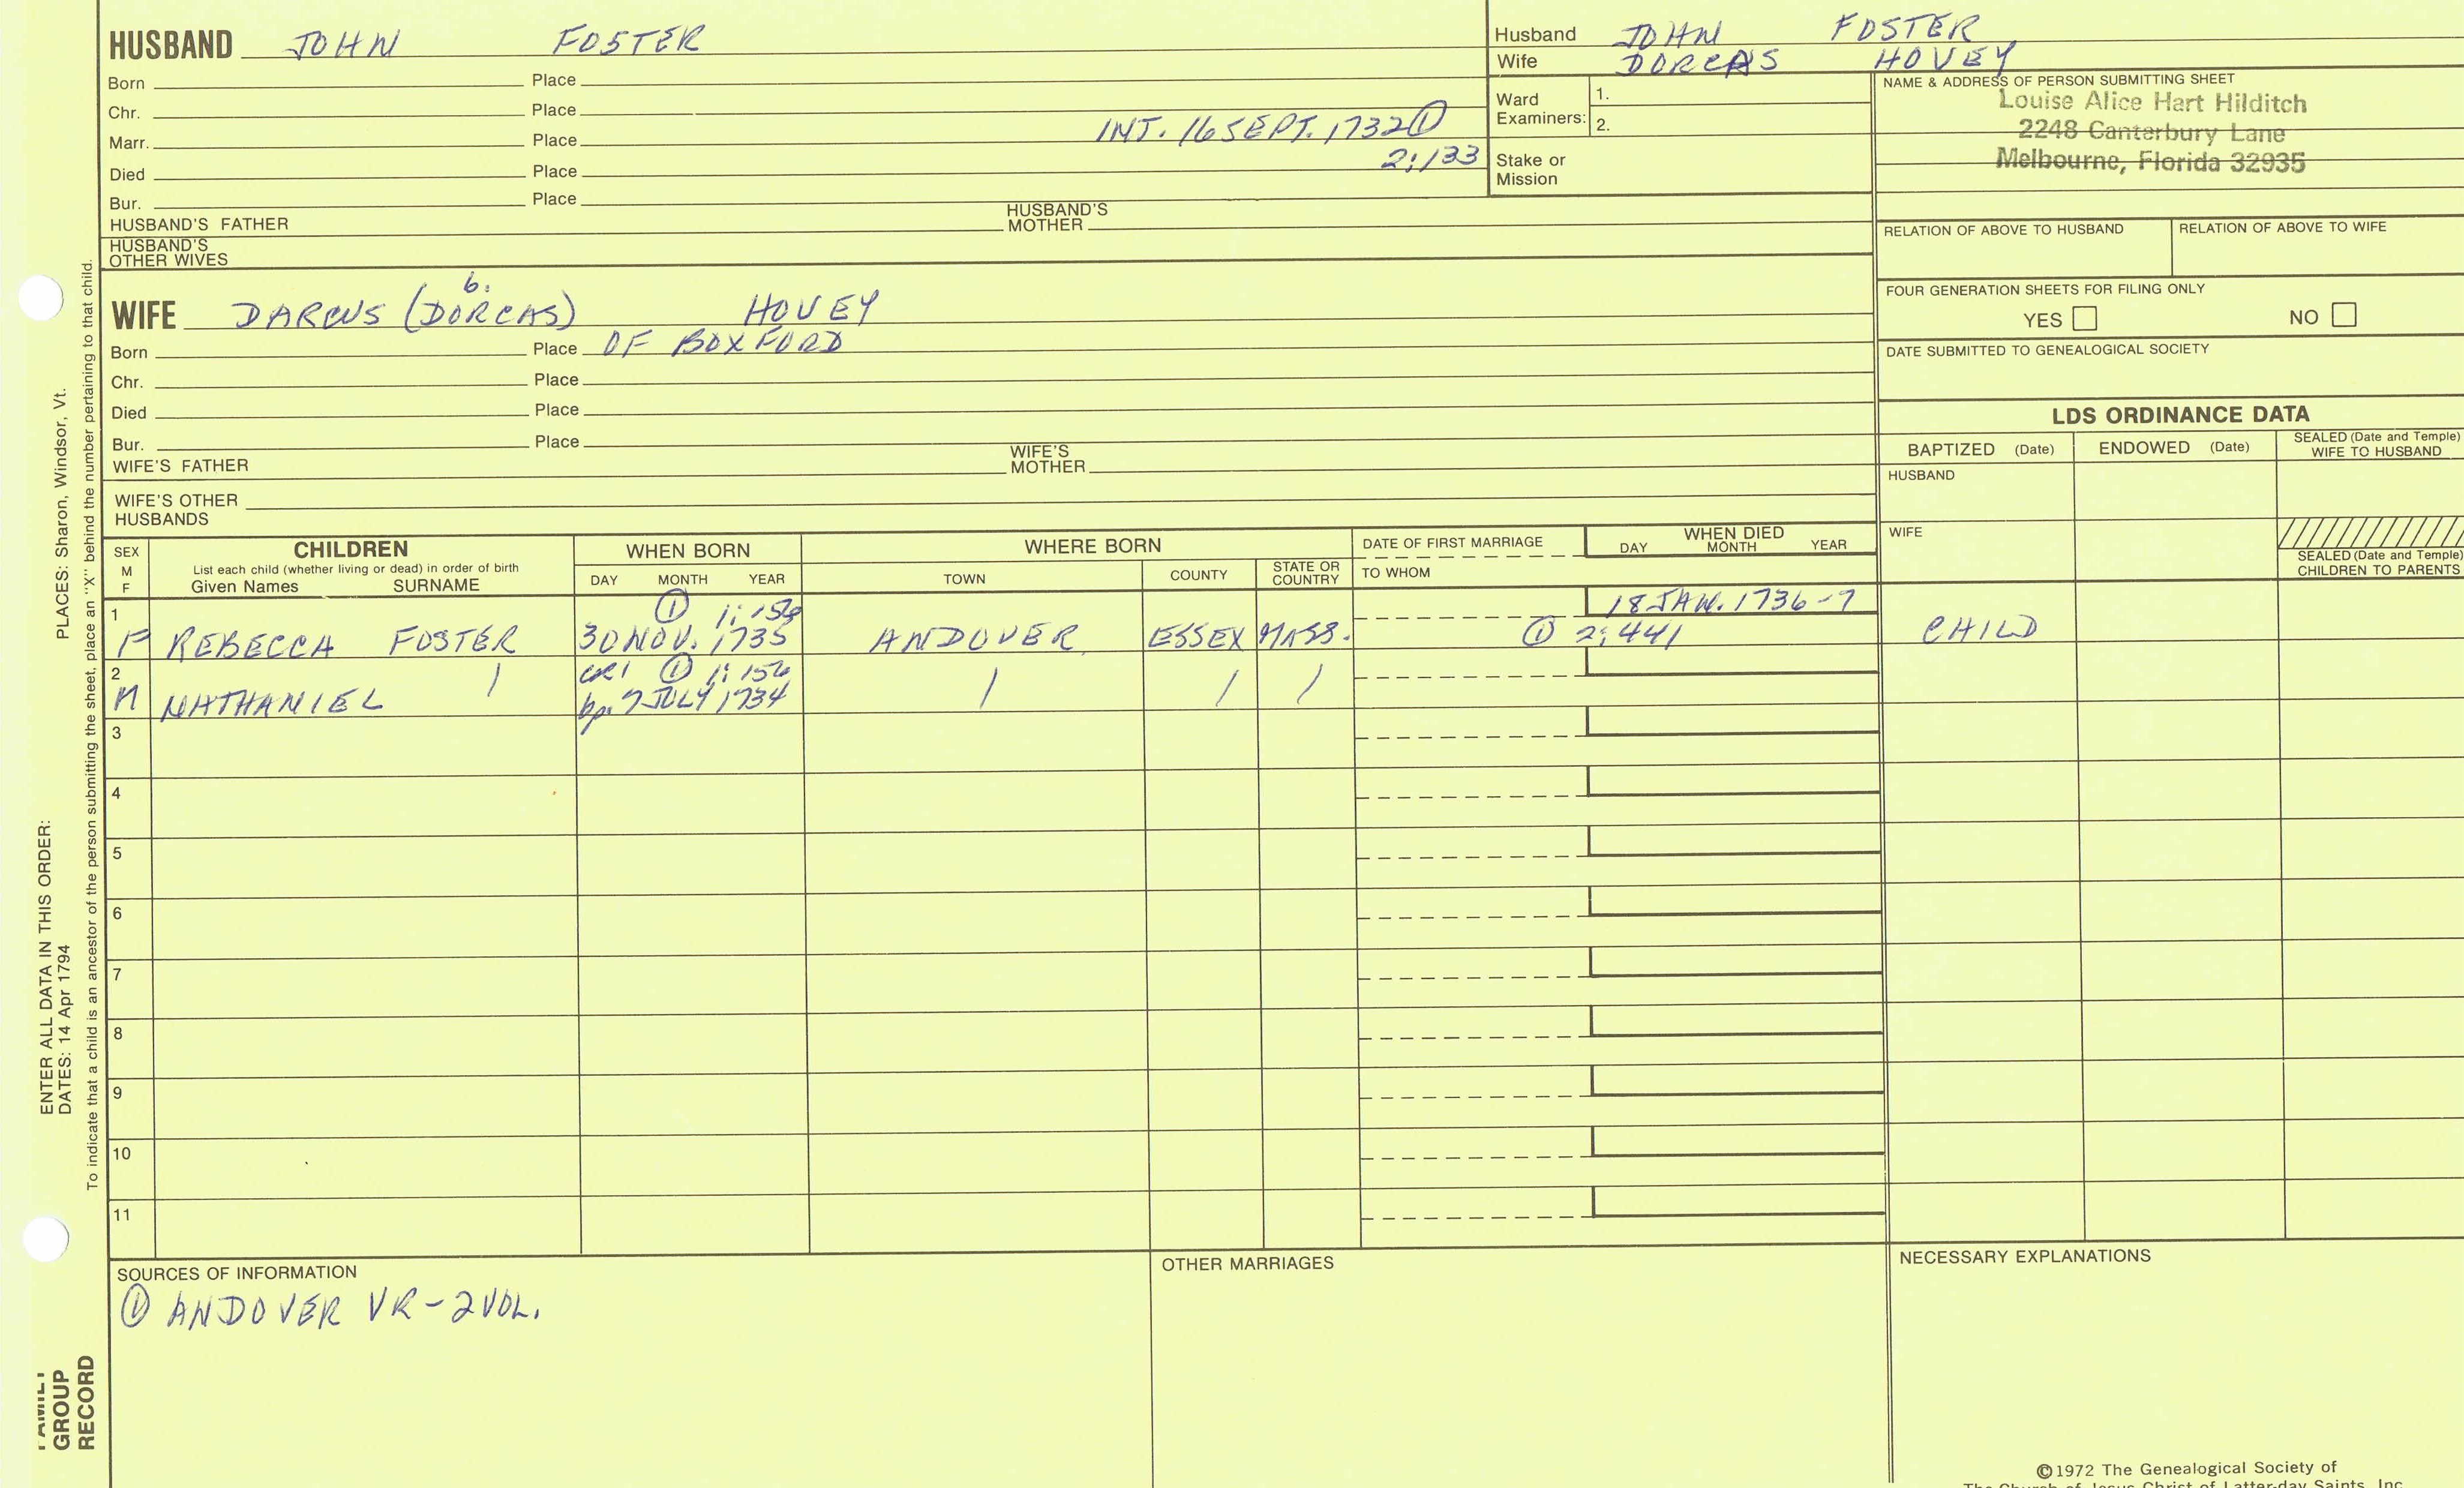 HUSBAND JOHN FOSTER
Born Place
Chr. Place
Marr. Place INT. 16 SEPT. 1732 ①
Died Place 2:133
Bur. Place
HUSBAND'S FATHER HUSBAND'S MOTHER
HUSBAND'S OTHER WIVES
Husband JOHN FOSTER
Wife DORCAS HOVEY
Ward Examiners: 1.
2.
Stake or Mission
NAME & ADDRESS OF PERSON SUBMITTING SHEET
Louise Alice Hart Hilditch
2248 Canterbury Lane
Melbourne, Florida 32935
RELATION OF ABOVE TO HUSBAND RELATION OF ABOVE TO WIFE
FOUR GENERATION SHEETS FOR FILING ONLY
YES NO
DATE SUBMITTED TO GENEALOGICAL SOCIETY
b.
WIFE DARCUS (DORCAS) HOVEY
Born Place OF BOXFORD
Chr. Place
Died Place
Bur. Place
WIFE'S FATHER WIFE'S MOTHER
WIFE'S OTHER HUSBANDS
LDS ORDINANCE DATA
BAPTIZED (Date) ENDOWED (Date) SEALED (Date and Temple) WIFE TO HUSBAND
HUSBAND
WIFE
SEALED (Date and Temple) CHILDREN TO PARENTS
SEX M F
CHILDREN
List each child (whether living or dead) in order of birth
Given Names SURNAME
WHEN BORN
DAY MONTH YEAR
WHERE BORN
TOWN COUNTY STATE OR COUNTRY
DATE OF FIRST MARRIAGE
TO WHOM
WHEN DIED
DAY MONTH YEAR
1 ① 1:156 18 JAN. 1736-7
F REBECCA FOSTER 30 NOV. 1735 ANDOVER ESSEX MASS. ① 2:441 CHILD
2 CR1 ① 1:156
M NATHANIEL / bp. 7 JULY 1734 / / /
3
4
5
6
7
8
9
10
11
SOURCES OF INFORMATION
① ANDOVER VR-2VOL.
OTHER MARRIAGES
NECESSARY EXPLANATIONS
©1972 The Genealogical Society of
The Church of Jesus Christ of Latter-day Saints, Inc.
PLACES: Sharon, Windsor, Vt.
To indicate that a child is an ancestor of the person submitting the sheet, place an "X" behind the number pertaining to that child.
ENTER ALL DATA IN THIS ORDER:
DATES: 14 Apr 1794
FAMILY
GROUP
RECORD